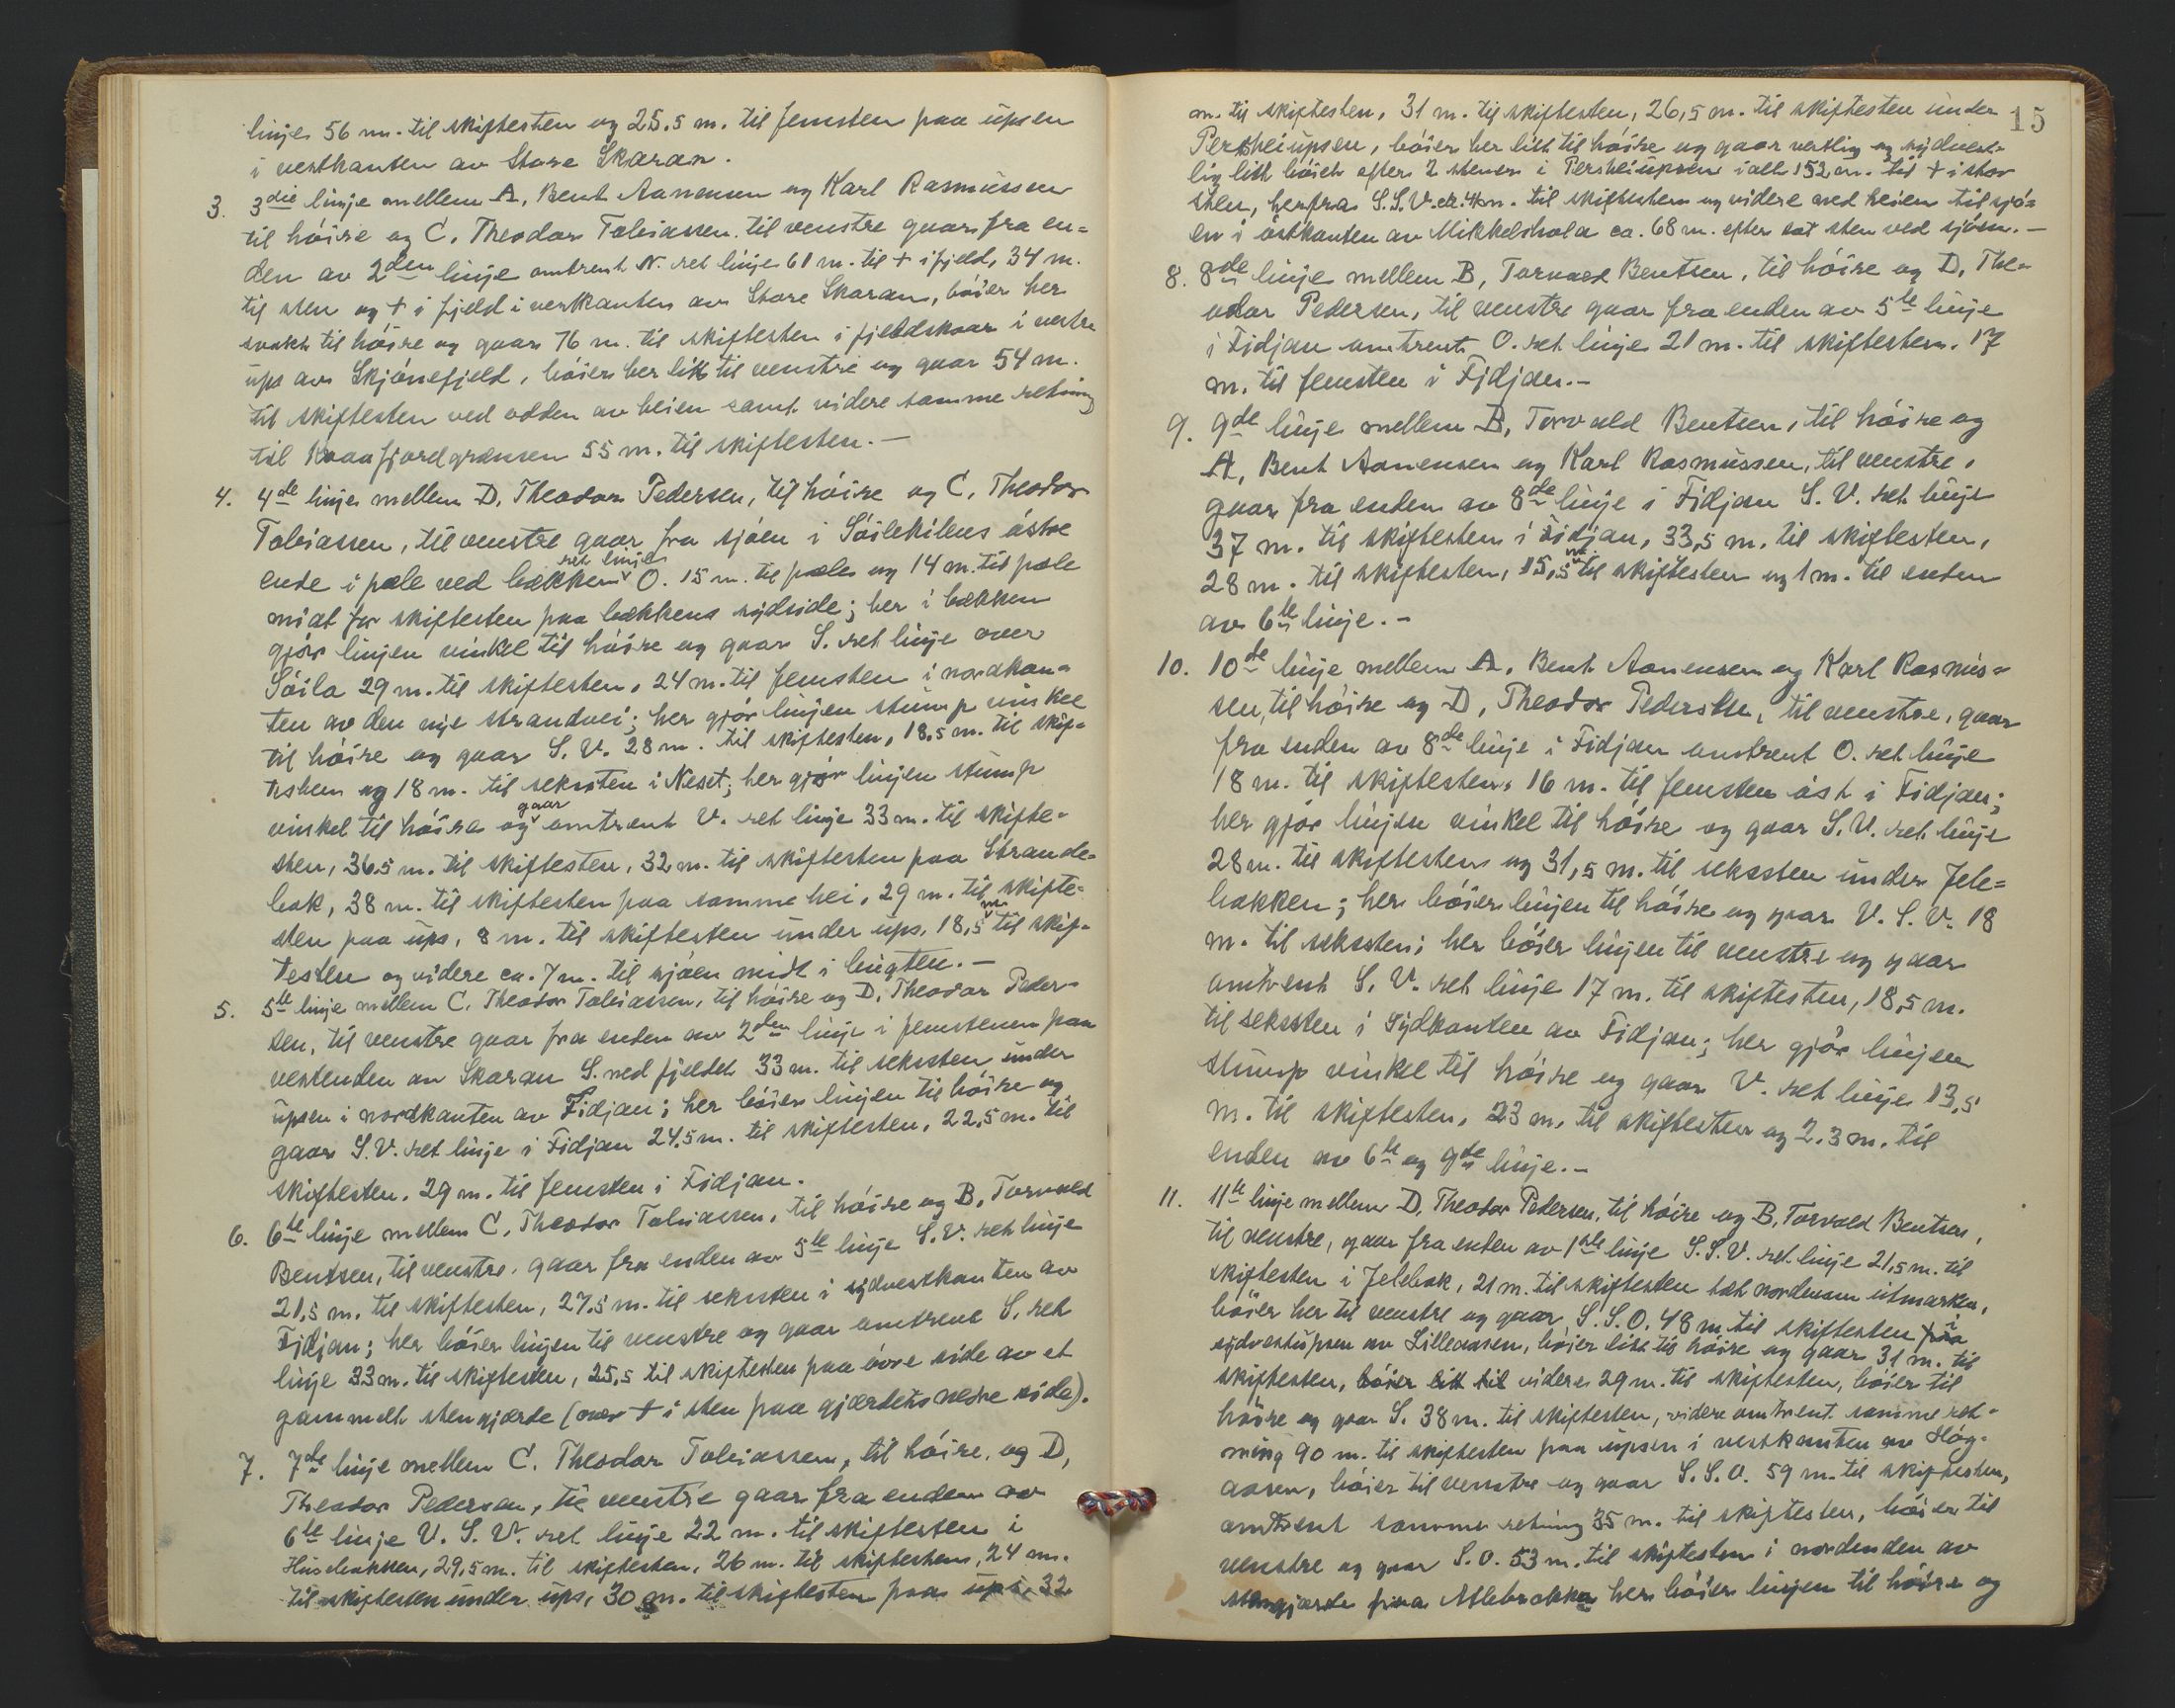 linje 56 m. til skiftesten og 25,5 m. til femsten paa upsen
i vestkanten av Store Skaran.
3. 3die linje mellem A, Bent Aanensen og Karl Rasmussen
til höire og C. Theodor Tobiassen til venstre gaar fra en=
den av 2den linje omtrent N. ret linje 61 m. til + i fjeld, 34 m.
til sten og + i fjeld i vestkanten av Store Skaran, böier her
svakt til höire og gaar 76 m. til skiftesten i fjeldskaar i vestre
ups av Skjönefjeld, böier her litt til venstre og gaar 54 m.
til skiftesten ved odden av heien samt videre samme retning
til Kvaafjordgrænsen 55 m. til skiftesten.-
4. 4de linje mellem D, Theodor Pedersen, til höire og C, Theodor
Tobiassen, til venstre gaar fra sjöen i Söilekilens östre
ret linje
ende i pæle ved bækken O. 15 m. til pæle og 14 m. til pæle
midt for skiftesten paa bækkens sydside; her i bækken
gjör linjen vinkel til höire og gaar S. ret linje over
Söila 29 m. til skiftesten, 24 m. til femsten i nordkan=
ten av den nye strandvei; her gjör linjen stump vinkel
til höire og gaar S. V. 28 m. til skiftesten, 18,5 m. til skif=
testen og 18 m. til seksten i Neset; her gjör linjen stump
gaar
vinkel til höire og omtrent V. ret linje 33 m. til skifte=
sten, 36,5 m. til skiftesten, 32 m. til skiftesten paa Strande=
bak, 38 m. til skiftesten paa samme hei, 29 m. til skifte=
m.
sten paa ups, 8 m. til skiftesten under ups, 18,5 til skif=
testen og videre ca. 7 m. til sjöen midt i bugten.-
5. 5te linje mellem C. Theodor Tobiassen, til höire og D. Theodor Peder=
sen, til venstre gaar fra enden av 2den linje i femstenen paa
vestenden av Skaran S. ned fjeldet 33 m. til seksten under
upsen i nordkanten av Fidjan; her böier linjen til höire og
gaar S.V. ret linje i Fidjan 24,5 m. til skiftesten, 22,5 m. til
skiftesten, 29 m. til femsten i Fidjan.
6. 6te linje mellem C, Theodor Tobiassen, til höire og B, Torvald
Bentsen, til venstre, gaar fra enden av 5te linje S.V. ret linje
21,5 m. til skiftesten, 27,5 m. til seksten i sydvestkanten av
Fidjan; her böier linjen til venstre og gaar omtrent S. ret
linje 33 m. til skiftesten, 25,5 til skiftesten paa övre side av et
gammelt stengjærde (over + i sten paa gjærdets nedre side).
7. 7de linje mellem C. Theodor Tobiassen, til höire, og D,
Theodor Pedersen, til venstre gaar fra enden av
6te linje V. S. V. ret linje 22 m. til skiftesten i
Husebakken, 29,5 m. til skiftesten, 26 m. til skiftesten, 24 m.
til skiftesten under ups, 30 m. til skiftesten paa ups, 32
15
m. til skiftesten, 31 m. til skiftesten, 26,5 m. til skiftesten under
Persheiupsen, böier her litt til höire og gaar vestlig og sydvest=
lig litt böiet efter 2 stener i Persheiupsen ialt 152 m. til + i stor
sten, herfra S.S.V. et. 4 m. til skiftesten og videre ned heien til sjö=
en i östkanten av Mikkelshola ca. 68 m. efter sat sten ved sjöen.-
8. 8de linje mellem B, Torvald Bentsen, til höire og D, The=
odor Pedersen, til venstre gaar fra enden av 5te linje
i Fidjan omtrent O. ret linje 21 m. til skiftesten. 17
m. til femsten i Fidjan.-
9. 9de linje mellem B, Torvald Bentsen, til höire og
A, Bent Aanensen og Karl Rasmussen, til venstre,
gaar fra enden av 8de linje i Fidjan S. V. ret linje
37 m. til skiftesten i Fidjan, 33,5 m. til skiftesten,
m.
28 m. til skiftesten, 15,5 til skiftesten og 1 m. til enden
av 6te linje.-
10. 10de linje mellem A, Bent Aanensen og Karl Rasmus=
sen, til höire og D, Theodor Pedersen, til venstre, gaar
fra enden av 8de linje i Fidjan omtrent O. ret linje
18 m. til skiftesten, 16 m. til femsten öst i Fidjan;
her gjör linjen vinkel til höire og gaar S.V. ret linje
28 m. til skiftesten og 31,5 m. til seksten under Jele=
bakken; her böier linjen til höire og gaar V. S. V. 18
m. til seksten; her böier linjen til venstre og gaar
omtrent S. V. ret linje 17 m. til skiftesten, 18,5 m.
til seksten i Sydkanten av Fidjan; her gjör linjen
stump vinkel til höire og gaar V. ret linje 13,5
m. til skiftesten, 23 m. til skiftesten og 2,3 m. til
enden av 6te og 9de linje.-
11. 11te linje mellem D. Theodor Pedersen, til höire og B, Torvald Bentsen,
til venstre, gaar fra enden av 1ste linje S.S.V. ret linje 21,5 m. til
skiftesten i Jelebak, 21 m. til skiftesten tæt nordenom utmarken,
böier her til venstre og gaar S. S. O. 48 m. til skiftesten paa
i
sydvestupsen av Lilleaasen, böier litt til höire og gaar 31 m. til
skiftesten, böier litt til videre 29 m. til skiftesten, böier til
höire og gaar S. 38 m. til skiftesten, videre omtrent samme ret=
ning 90 m. til skiftesten paa upsen i vestkanten av Hög=
aasen, böier til venstre og gaar S. S. O. 59 m. til skiftesten,
omtrent samme retning 35 m. til skiftesten, böier til
venstre og gaar S.O. 53 m. til skiftesten i nordenden av
stengjærde paa Aslebrokka her böier linjen til höire og